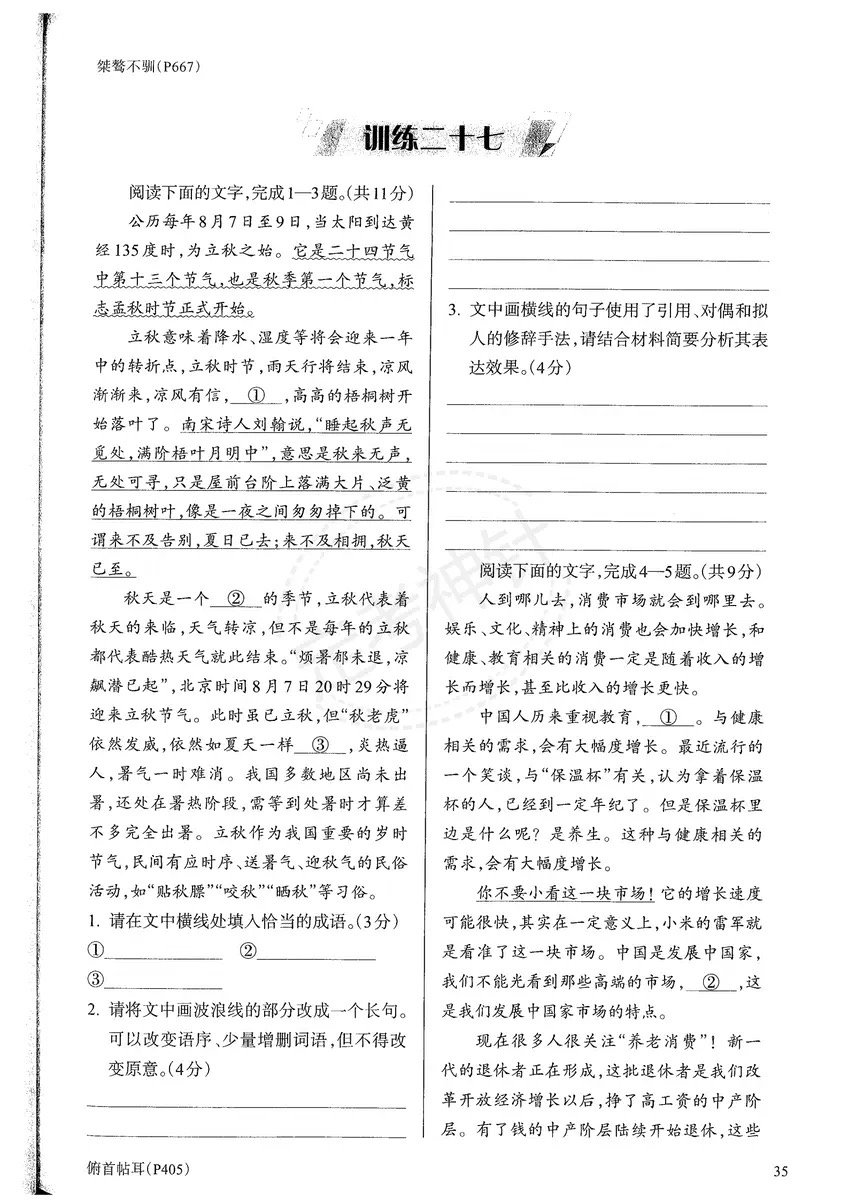 桀骜不驯(P667)
训练二十七
阅读下面的文字,完成1—3题。(共11分)
公历每年8月7日至9日,当太阳到达黄
经135度时,为立秋之始。它是二十四节气
中第十三个节气,也是秋季第一个节气,标
志孟秋时节正式开始。
立秋意味着降水、湿度等将会迎来一年
中的转折点,立秋时节,雨天行将结束,凉风
渐渐来,凉风有信,①,高高的梧桐树开
始落叶了。南宋诗人刘翰说,“睡起秋声无
觅处,满阶梧叶月明中”,意思是秋来无声,
无处可寻,只是屋前台阶上落满大片、泛黄
的梧桐树叶,像是一夜之间匆匆掉下的。可
谓来不及告别,夏日已去;来不及相拥,秋天
已至。
秋天是一个②的季节,立秋代表着
秋天的来临,天气转凉,但不是每年的立秋
都代表酷热天气就此结束。“烦暑郁未退,凉
飙潜已起”,北京时间8月7日20时29分将
迎来立秋节气。此时虽已立秋,但“秋老虎”
依然发威,依然如夏天一样③,炎热逼
人,暑气一时难消。我国多数地区尚未出
暑,还处在暑热阶段,需等到处暑时才算差
不多完全出暑。立秋作为我国重要的岁时
节气,民间有应时序、送暑气、迎秋气的民俗
活动,如“贴秋膘”“咬秋”“晒秋”等习俗。
1. 请在文中横线处填入恰当的成语。(3分)
① ②
③
2. 请将文中画波浪线的部分改成一个长句。
可以改变语序、少量增删词语,但不得改
变原意。(4分)
3. 文中画横线的句子使用了引用、对偶和拟
人的修辞手法,请结合材料简要分析其表
达效果。(4分)
阅读下面的文字,完成4—5题。(共9分)
人到哪儿去,消费市场就会到哪里去。
娱乐、文化、精神上的消费也会加快增长,和
健康、教育相关的消费一定是随着收入的增
长而增长,甚至比收入的增长更快。
中国人历来重视教育,①。与健康
相关的需求,会有大幅度增长。最近流行的
一个笑谈,与“保温杯”有关,认为拿着保温
杯的人,已经到一定年纪了。但是保温杯里
边是什么呢?是养生。这种与健康相关的
需求,会有大幅度增长。
你不要小看这一块市场!它的增长速度
可能很快,其实在一定意义上,小米的雷军就
是看准了这一块市场。中国是发展中国家,
我们不能光看到那些高端的市场,②,这
是我们发展中国家市场的特点。
现在很多人很关注“养老消费”!新一
代的退休者正在形成,这批退休者是我们改
革开放经济增长以后,挣了高工资的中产阶
层。有了钱的中产阶层陆续开始退休,这些
俯首帖耳(P405)
35